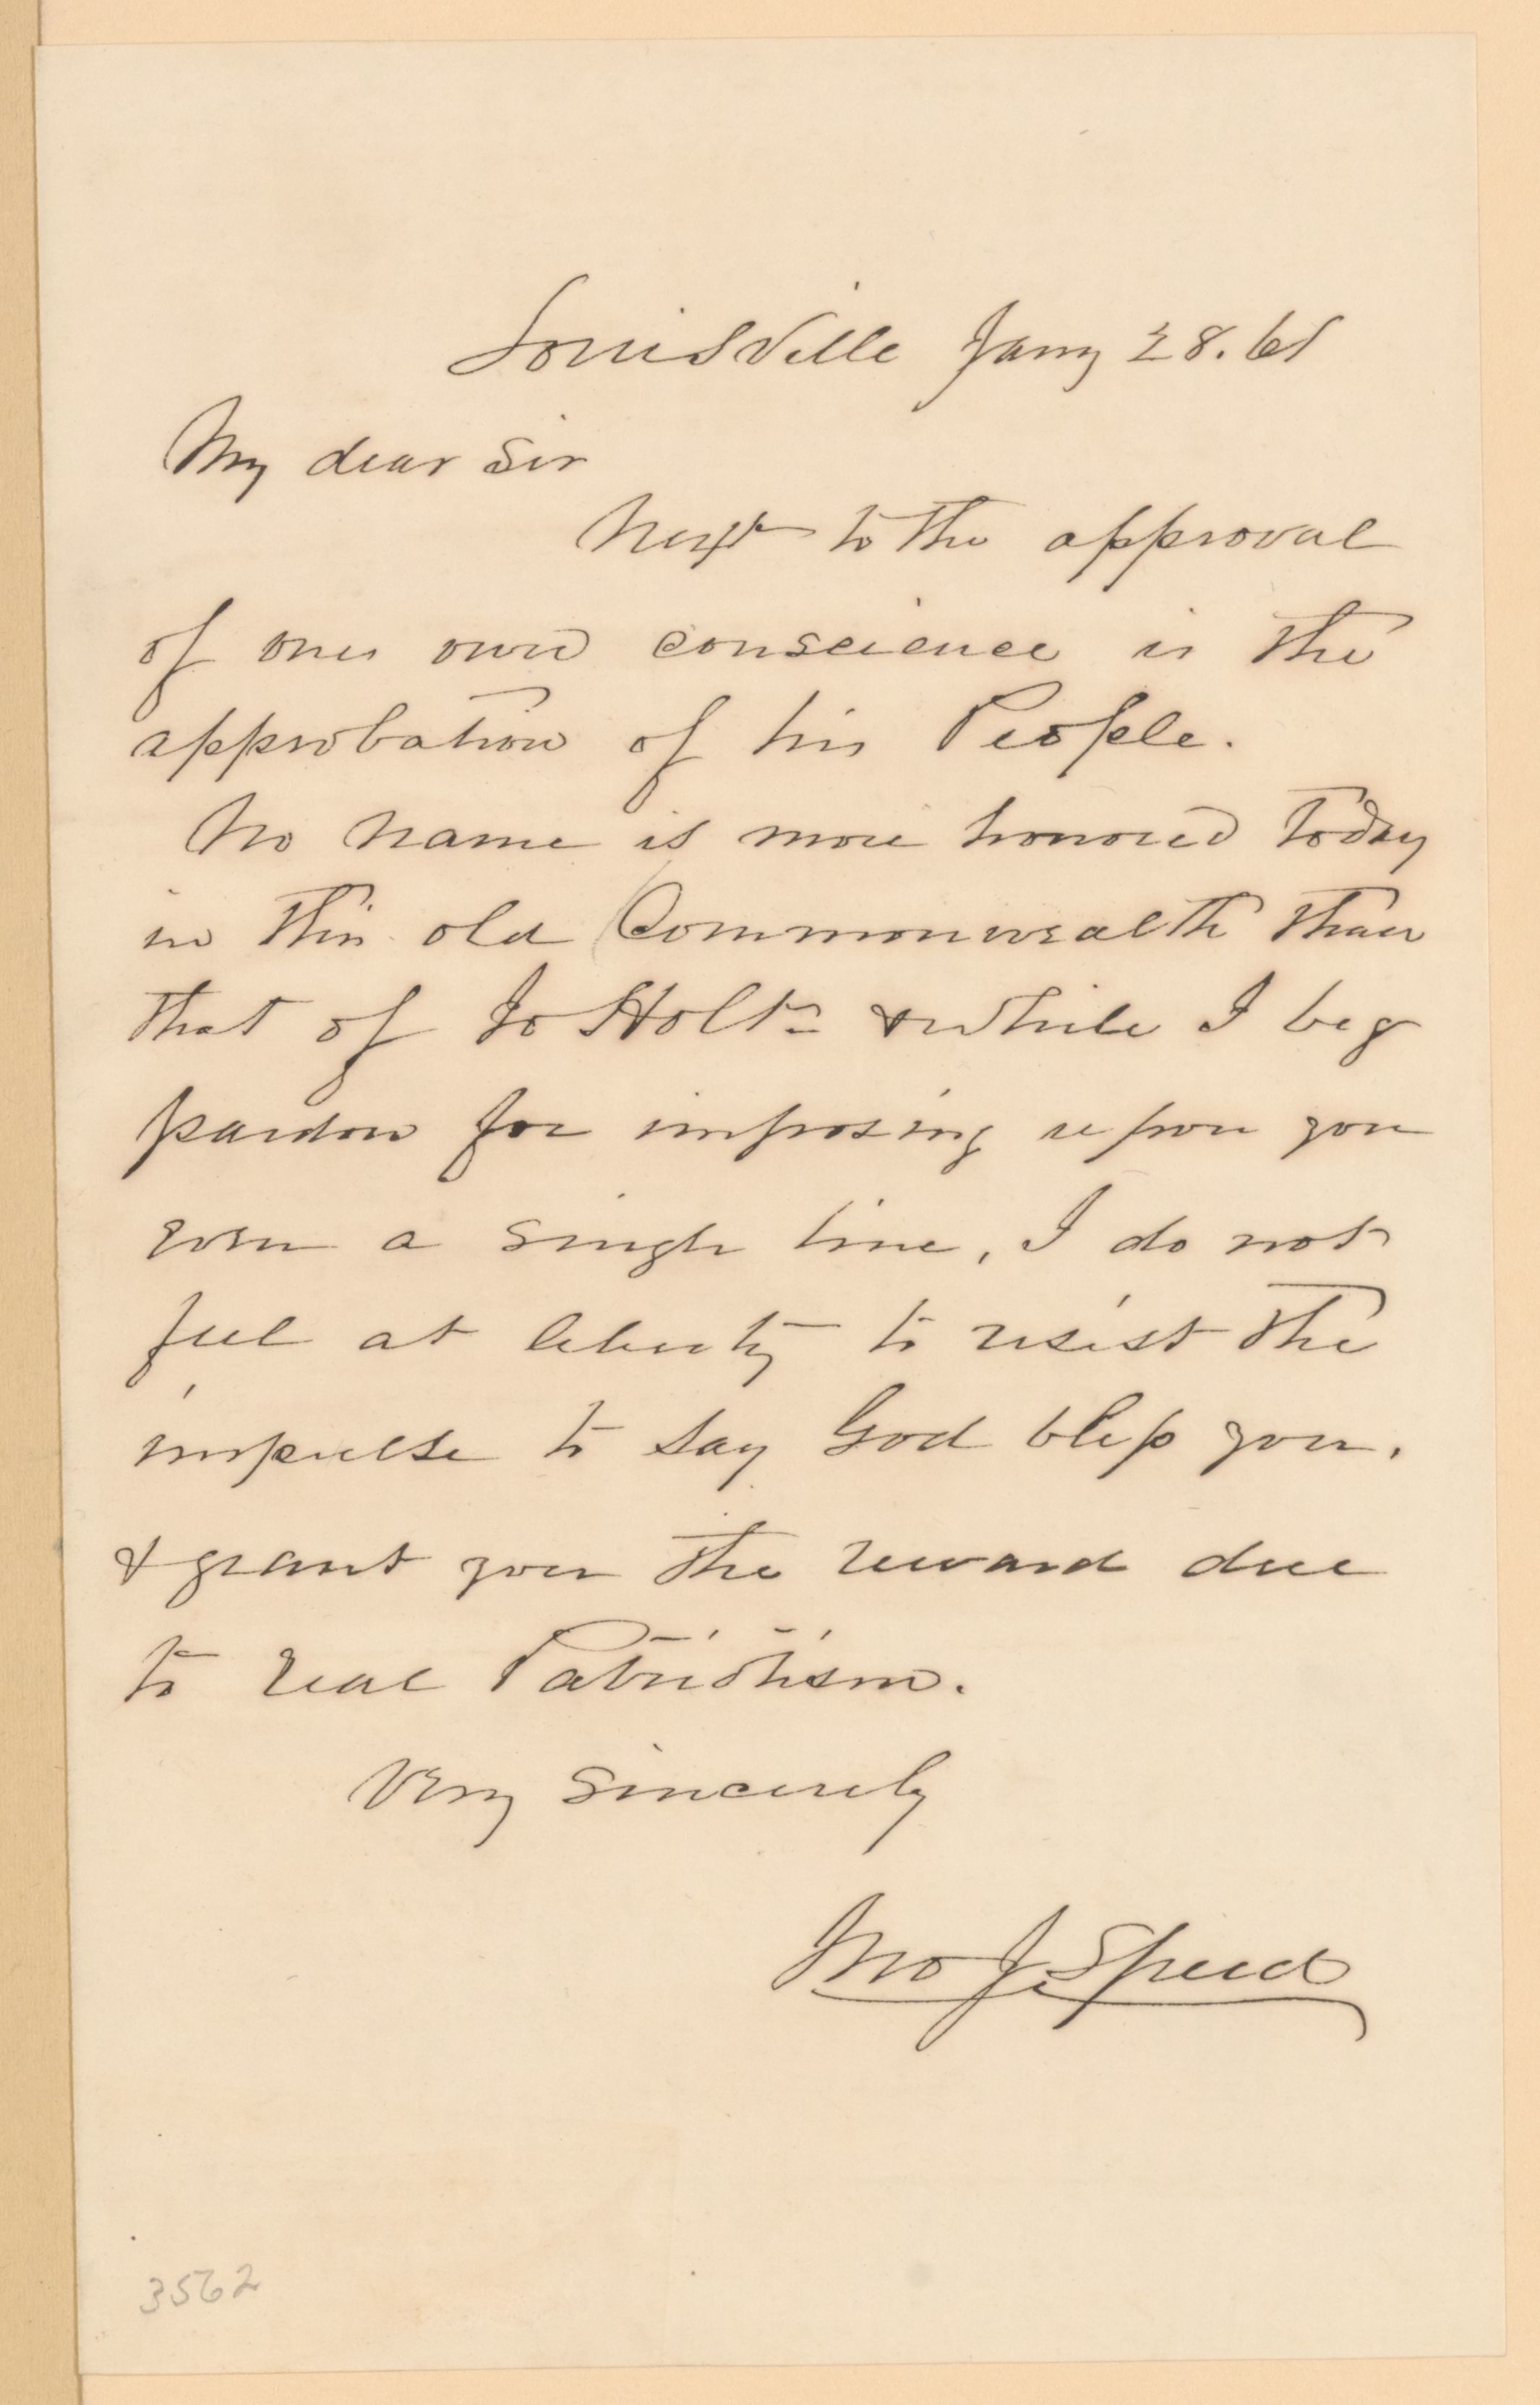 Louisville Jany 28. 61
My dear Sir
Next to the approval
of ones own conscience is the
approbation of his People.
No name is more honored today
in this old Commonwealth than
that of Jo Holt - & while I beg
pardon for imposing upon you
even a single line, I do not
feel at liberty to resist the
impulse to say God bless you.
& grant you the reward due
to real Patriotism.
Very Sincerely
Jno J. Speed
3562